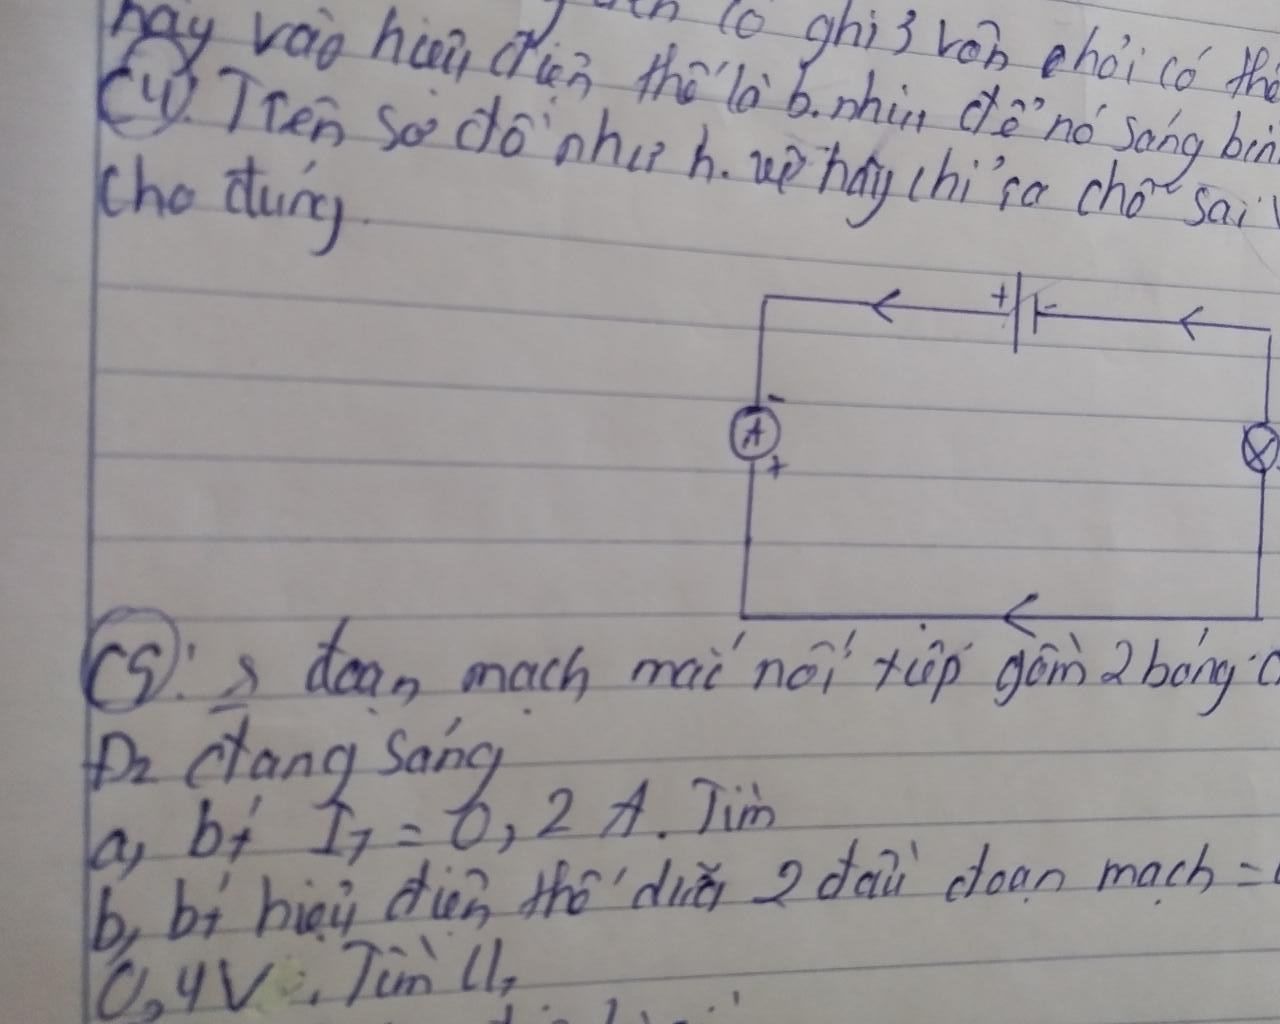 có ghi 3 vôn phải có thể
này vào hiệu điện thế là b.nhiu để nó sáng bìn
C4: Trên sơ đồ như h. vẽ hãy chỉ ra chỗ sai
cho đúng.
+ -
-
A
+
C5: đoạn mạch mắc nối tiếp gồm 2 bóng
Đ2 đang sáng
a, bí I1 = 0,2 A. Tìm
b, bí hiệu điện thế giữa 2 đầu đoạn mạch =
0,4V . Tìm U1